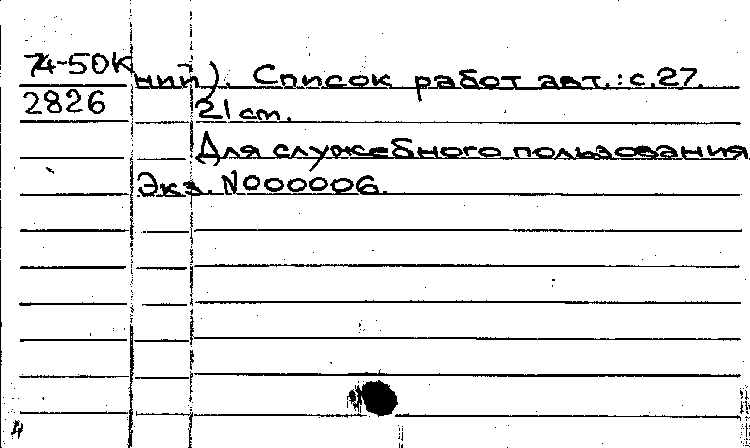 74-50К ний). Список работ авт.: с.27.
2826 21 cm.
Для служебного пользования
Экз. N000006.